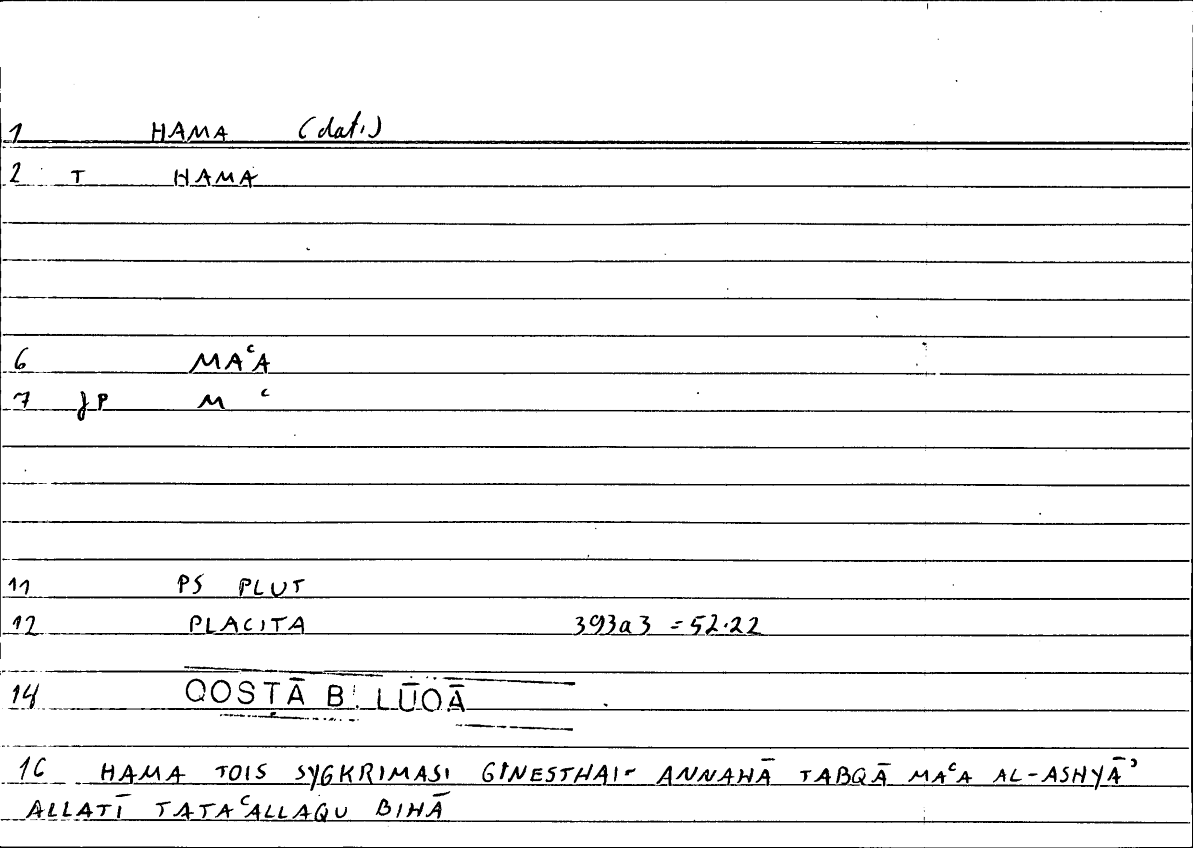 1 HAMA (dat.)
2 T HAMA
6 MAᶜA
7 JP M ᶜ
11 PS PLUT
12 PLACITA 393a3 = 52.22
14 QOSṬĀ B. LŪQĀ
16 HAMA TOIS SYGKRIMASI GINESTHAI - ANNAHĀ TABQĀ MAᶜA AL-ASHYĀʾ
ALLATĪ TATAᶜALLAQU BIHĀ